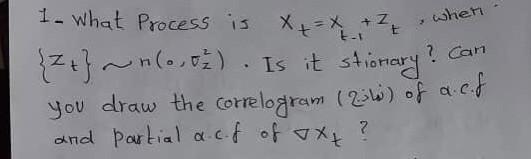 1- What Process is X_t = X_{t-1} + Z_t , when
{Z_t} ~ n(0, σ_z^2) . Is it stionary? Can
you draw the correlogram ( ) of a.c.f
and Partial a.c.f of ∇X_t ?